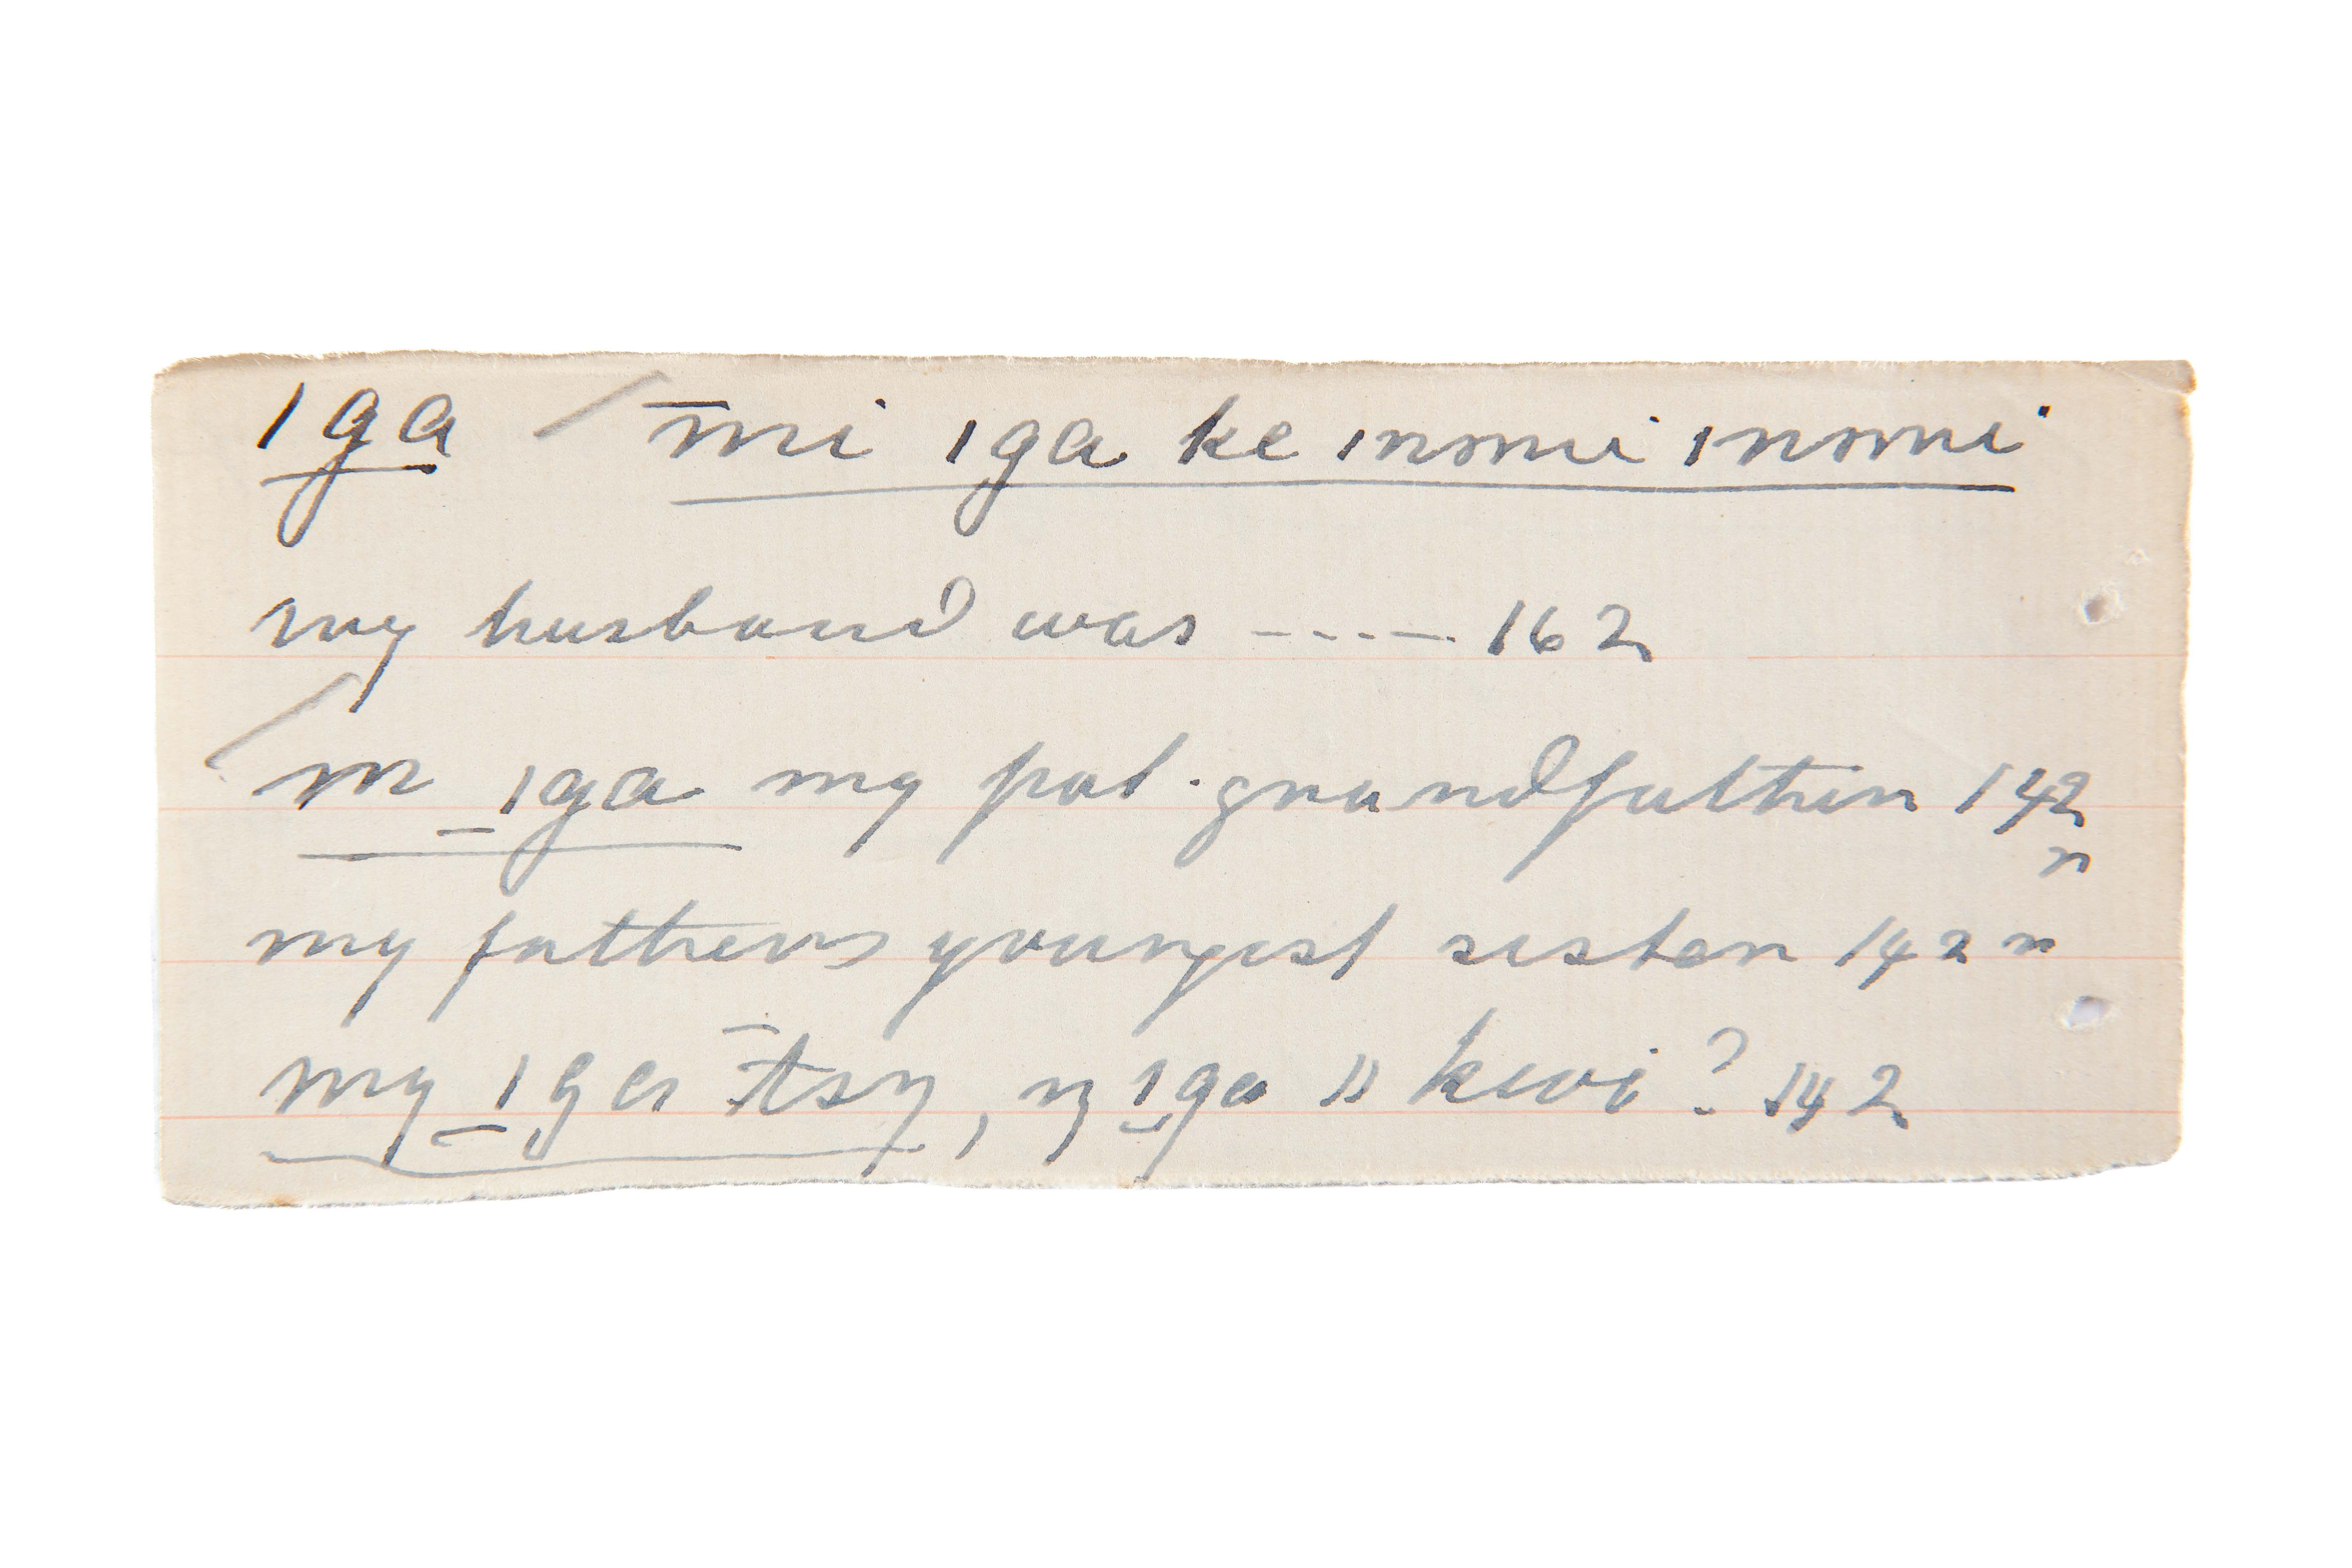 ıga / m̄i ıga ke ınomi ınomi
my husband was ----- 162
/ m _ıga my pat. grandfather 142
n
my fathers youngest sister 142 n
my ıga t̄sŋ, ŋ ıga " kwi? 142